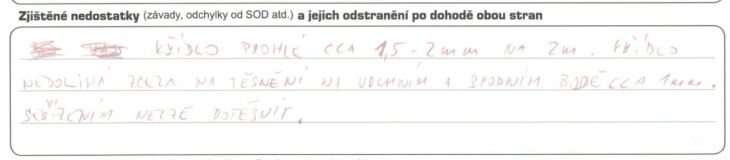 Zjištěné nedostatky (závady, odchylky od SOD atd.) a jejich odstranění po dohodě obou stran
KŘÍDLO PROHLÉ CCA 1,5 - 2mm NA 2m. KŘÍDLO
NEDOLÍHÁ ZCELA NA TĚSNĚNÍ NA VRCHNÍM A SPODNÍM BODĚ CCA 1mm.
SEŘÍZENÍM NELZE DOTĚSNIT.